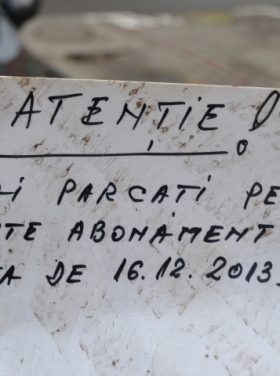 ATENȚIE
PARCATI PE
ABONAMENT
DE 16.12.2013